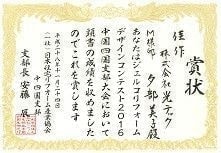 賞状
佳作
株式会社光テック
M様邸 夕部美香殿
あなたはジェルコリフォーム
デザインコンテスト2016
中国四国支部大会において
頭書の成績を収めました
のでこれを賞します
平成二十八年十一月二十四日
一社)日本住宅リフォーム産業協会
中四国支部
支部長 安藤 辰